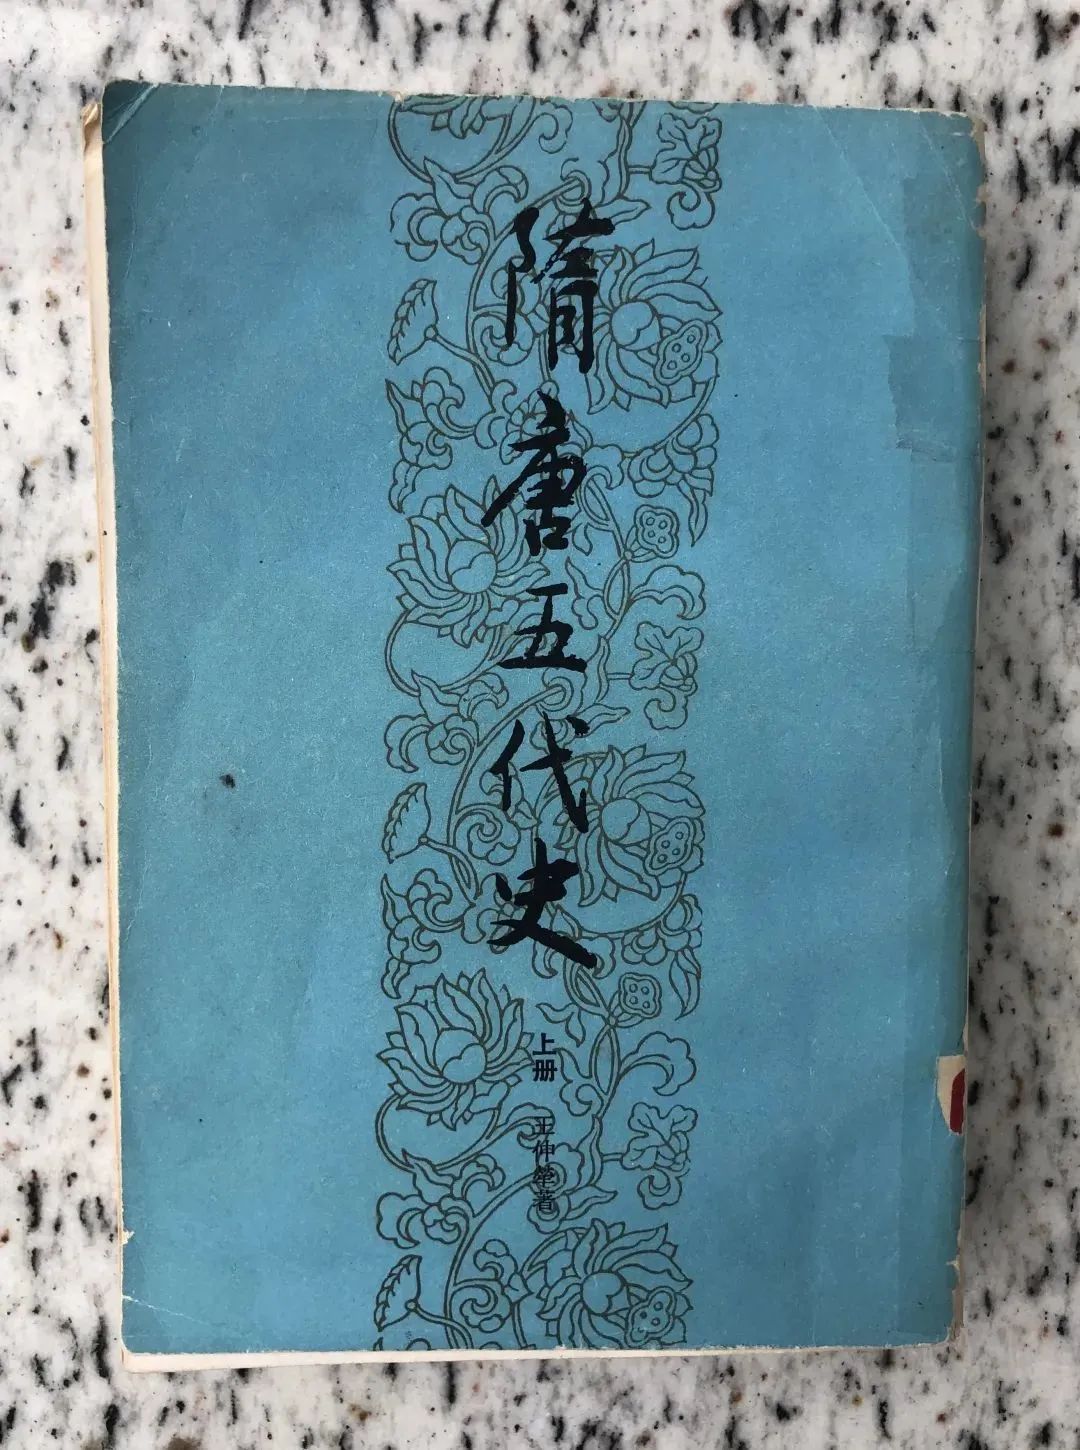 隋唐五代史
上册
王仲荦著